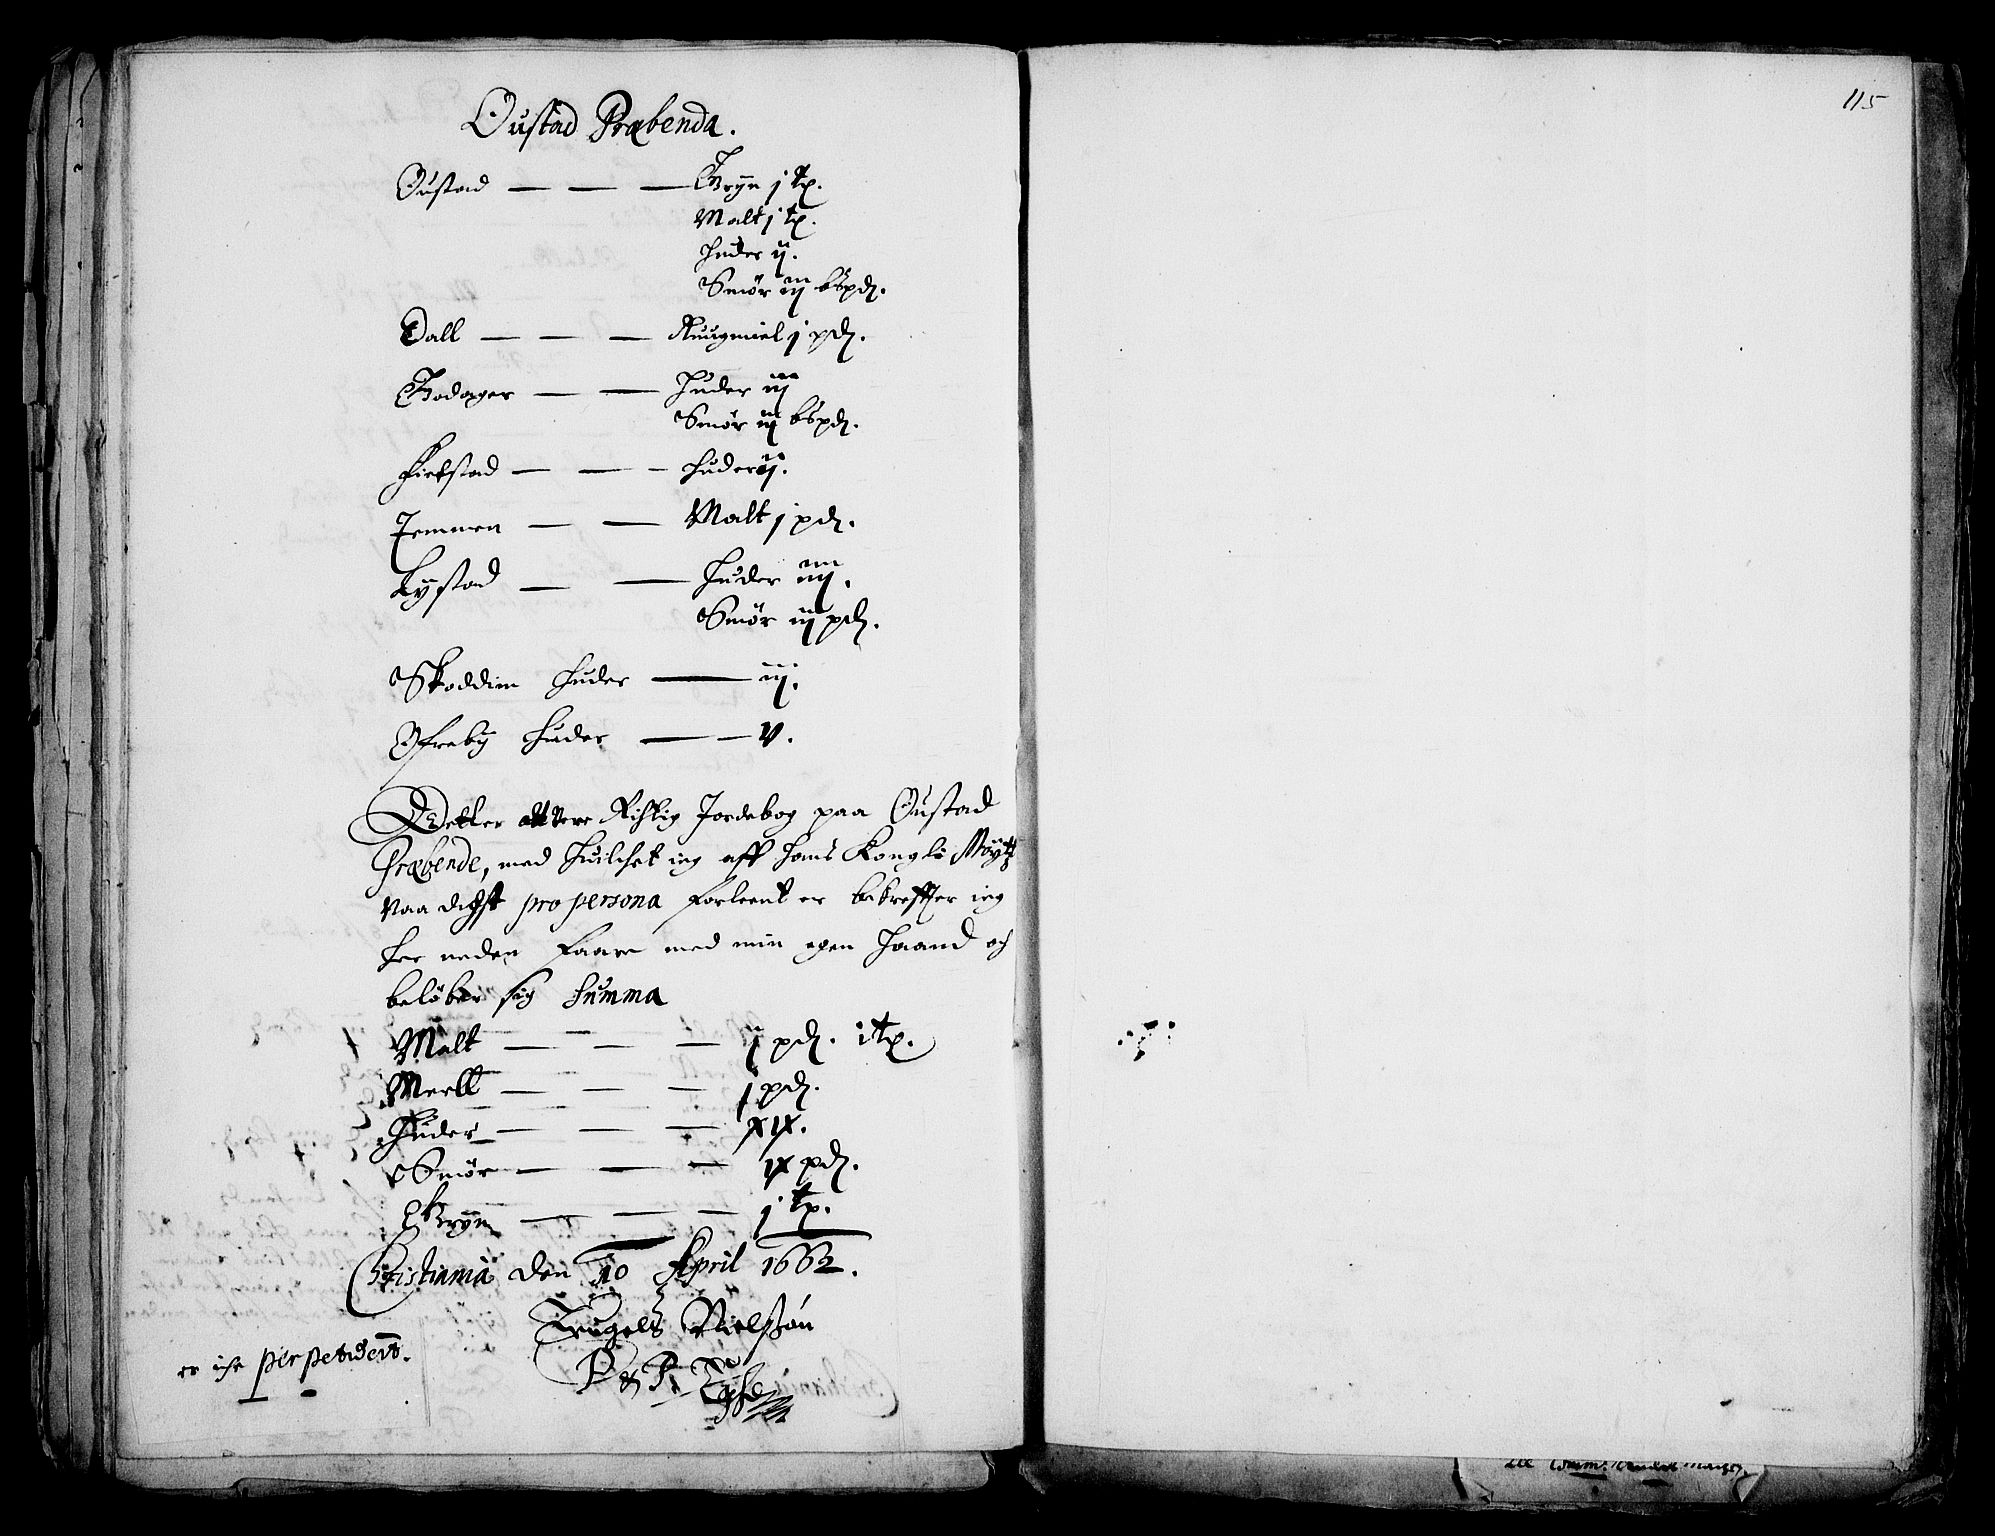 Oustad Præbenda.
Oustad — — — Gryn j tp.
Malt j tp.
Huder ij.
Smör iij bßpd.
Dall — — — Ruugmiel j pd.
Godager — — Huder iij
Smör iij bßpd.
Fierstad — — – Huder ij.
Jemnen — — Malt j pd.
Lystad — — Huder iiij.
Smör iij pd.
Skoddim Huder — iij.
Ofreby Huder — — V.
Dette er Rigtig Jordebog paa Oustad
Præbende, med huilchet ieg aff hans Kongli Mäytt
Naadigst pro persona Forleent er bekreffter ieg
her neden Faare med min egen Haand och
belöber sig Summa
Malt — — — ij pd. itp.
Meell — — — j pd.
Huder — — — XIX.
Smör — — — IX pd.
Gryn — — — j tp.
Christiania den 10 April 1662.
Trugels Nielßøn
er iche perpetuert.
115